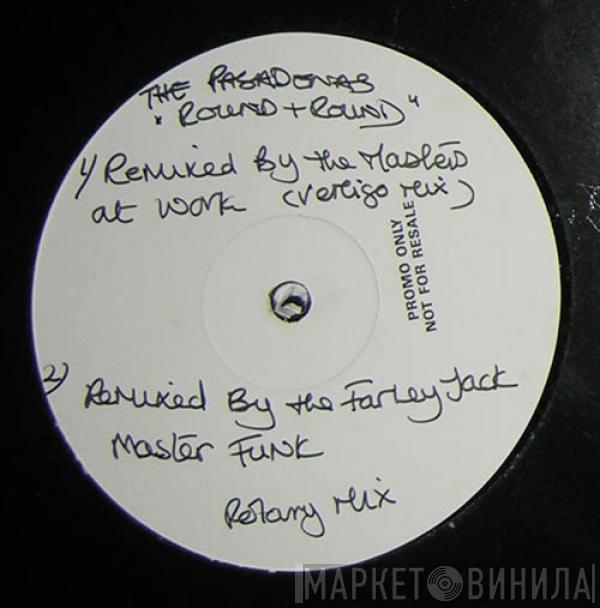 THE PASADENAS
"ROUND + ROUND"
1) Remixed By the Masters
at work (vertigo mix)
PROMO ONLY
NOT FOR RESALE
2) Remixed By the Farley Jack
Master Funk
Rotary Mix
МАРКЕТ ВИНИЛА